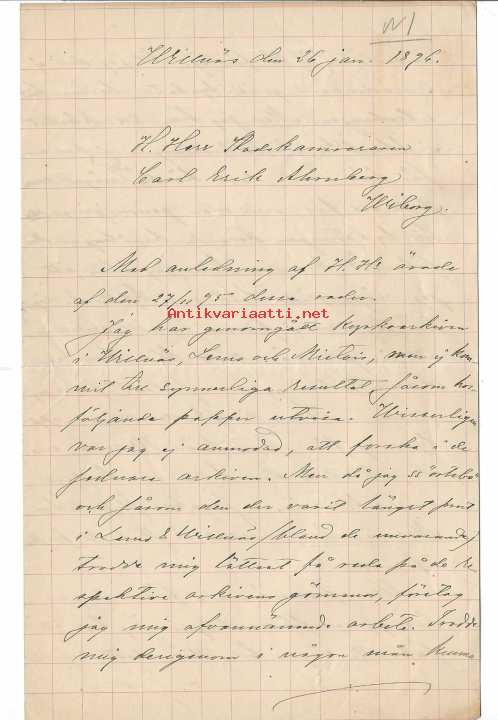 N1
Willnäs den 26 jan. 1896.
H. Herr Stadskamreraren
Carl Erik Ahrnberg
Wiborg.
Med anledning af H. Hr ärade
af den 27/11 95 dessa rader.
Antikvariaatti.net
Jag har genomgått Kyrkoarkiven
i Willnäs, Lemu och Mietois, men ej kom-
mit till synnerliga resultat såsom här
följande papper utvisa. Wisserligen
var jag ej anmodad, att forska i de
arkiven. Men då jag
och såsom den der varit längst prest
i Lemu & Willnäs /bland de nuvarande/
trodde mig lättast få reda på de re-
spektive arkivens gömmor, företog
jag mig ofvannämnde arbete. Trodde
mig derigenom i någon mån kunna